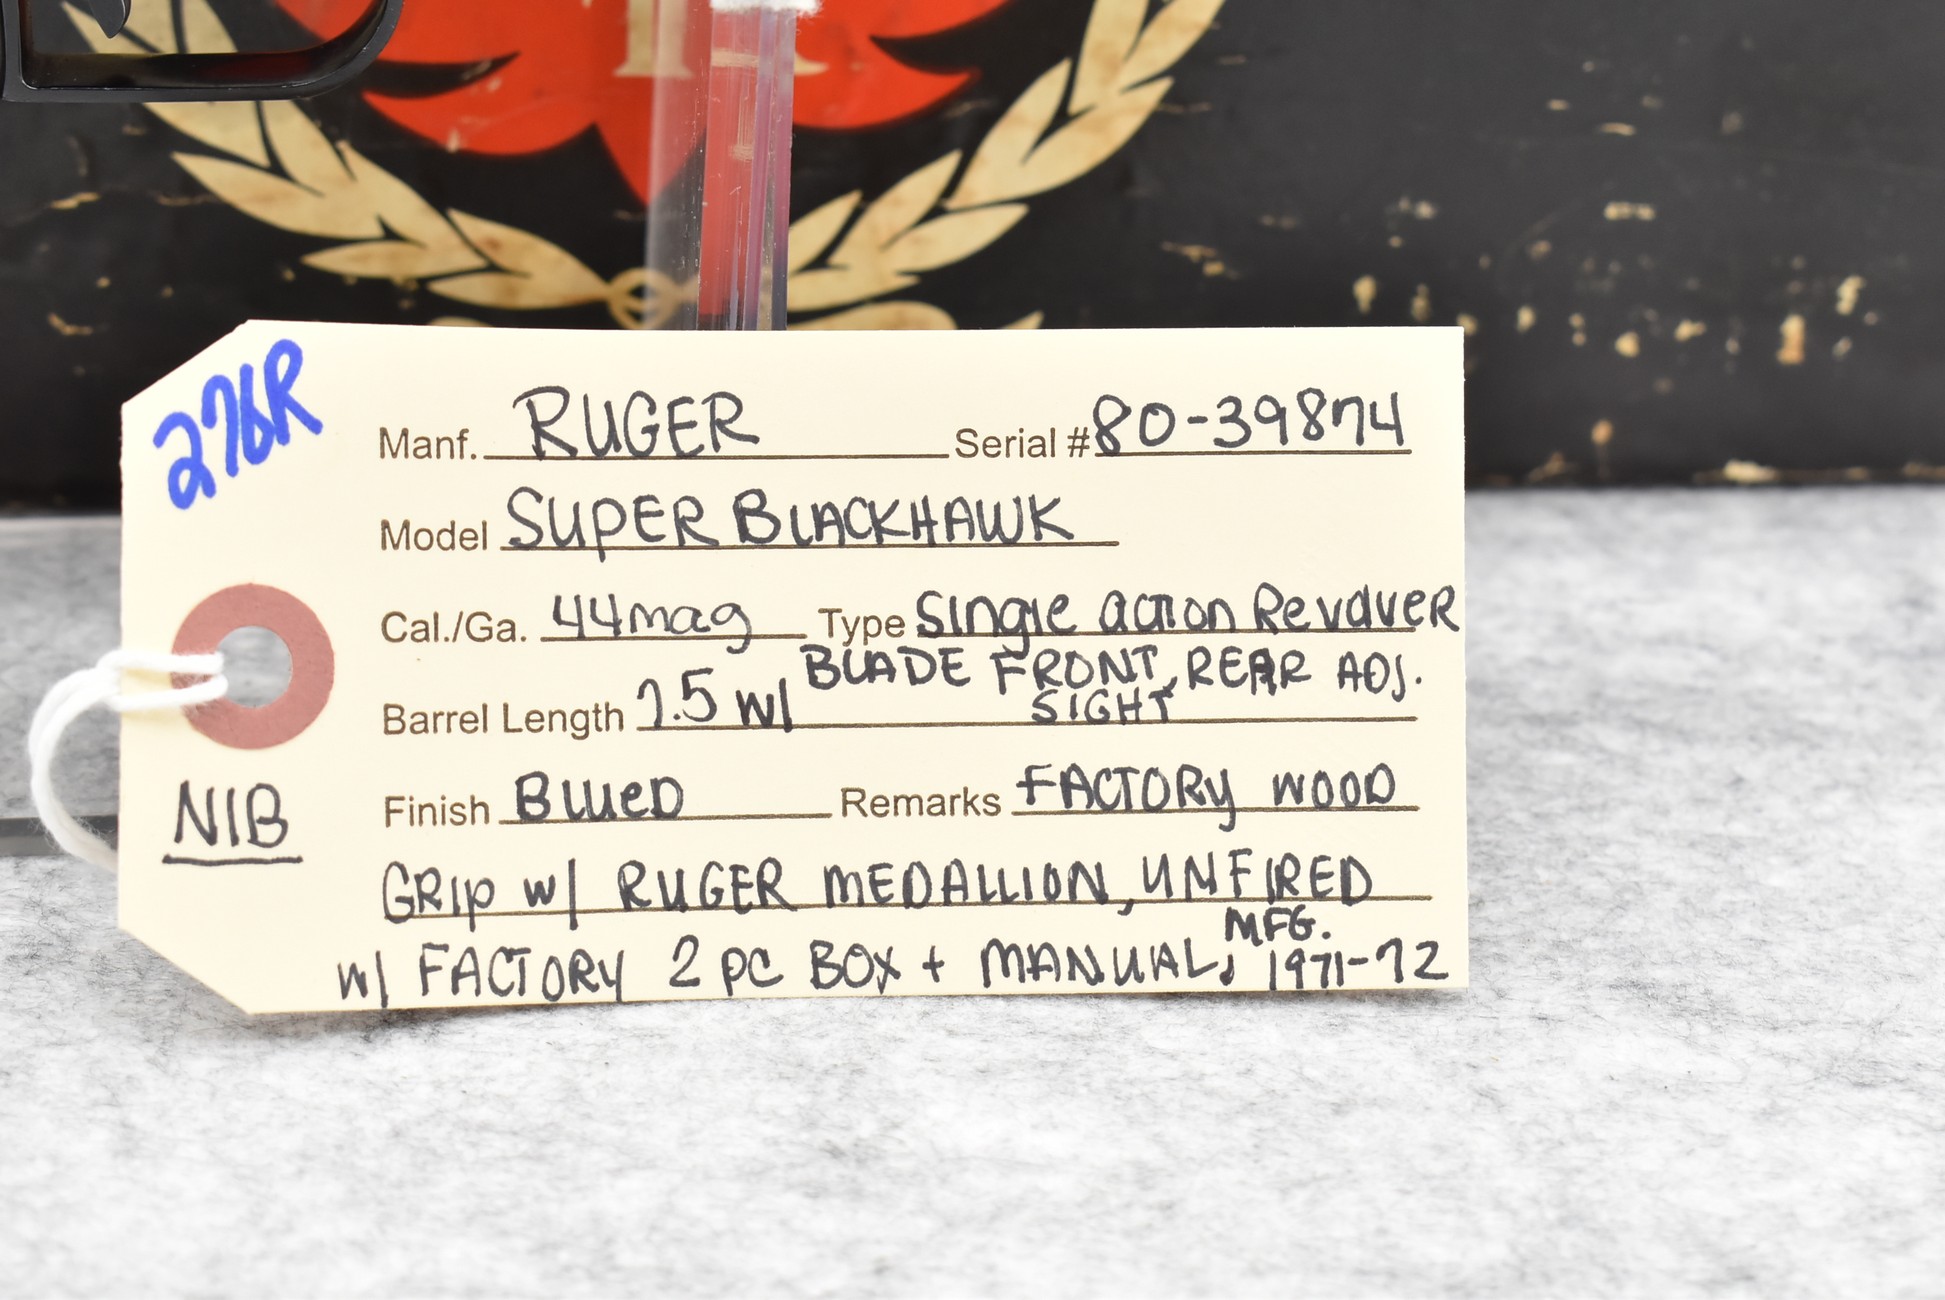 276R
Manf. RUGER Serial # 80-39874
Model SUPER BLACKHAWK
Cal./Ga. 44mag Type Single action Revolver
BLADE FRONT, REAR ADJ.
Barrel Length 7.5 w/ SIGHT
Finish BLUED Remarks FACTORY WOOD
NIB
GRIP w/ RUGER MEDALLION, UNFIRED
w/ FACTORY 2 PC BOX + MANUAL, MFG. 1971-72